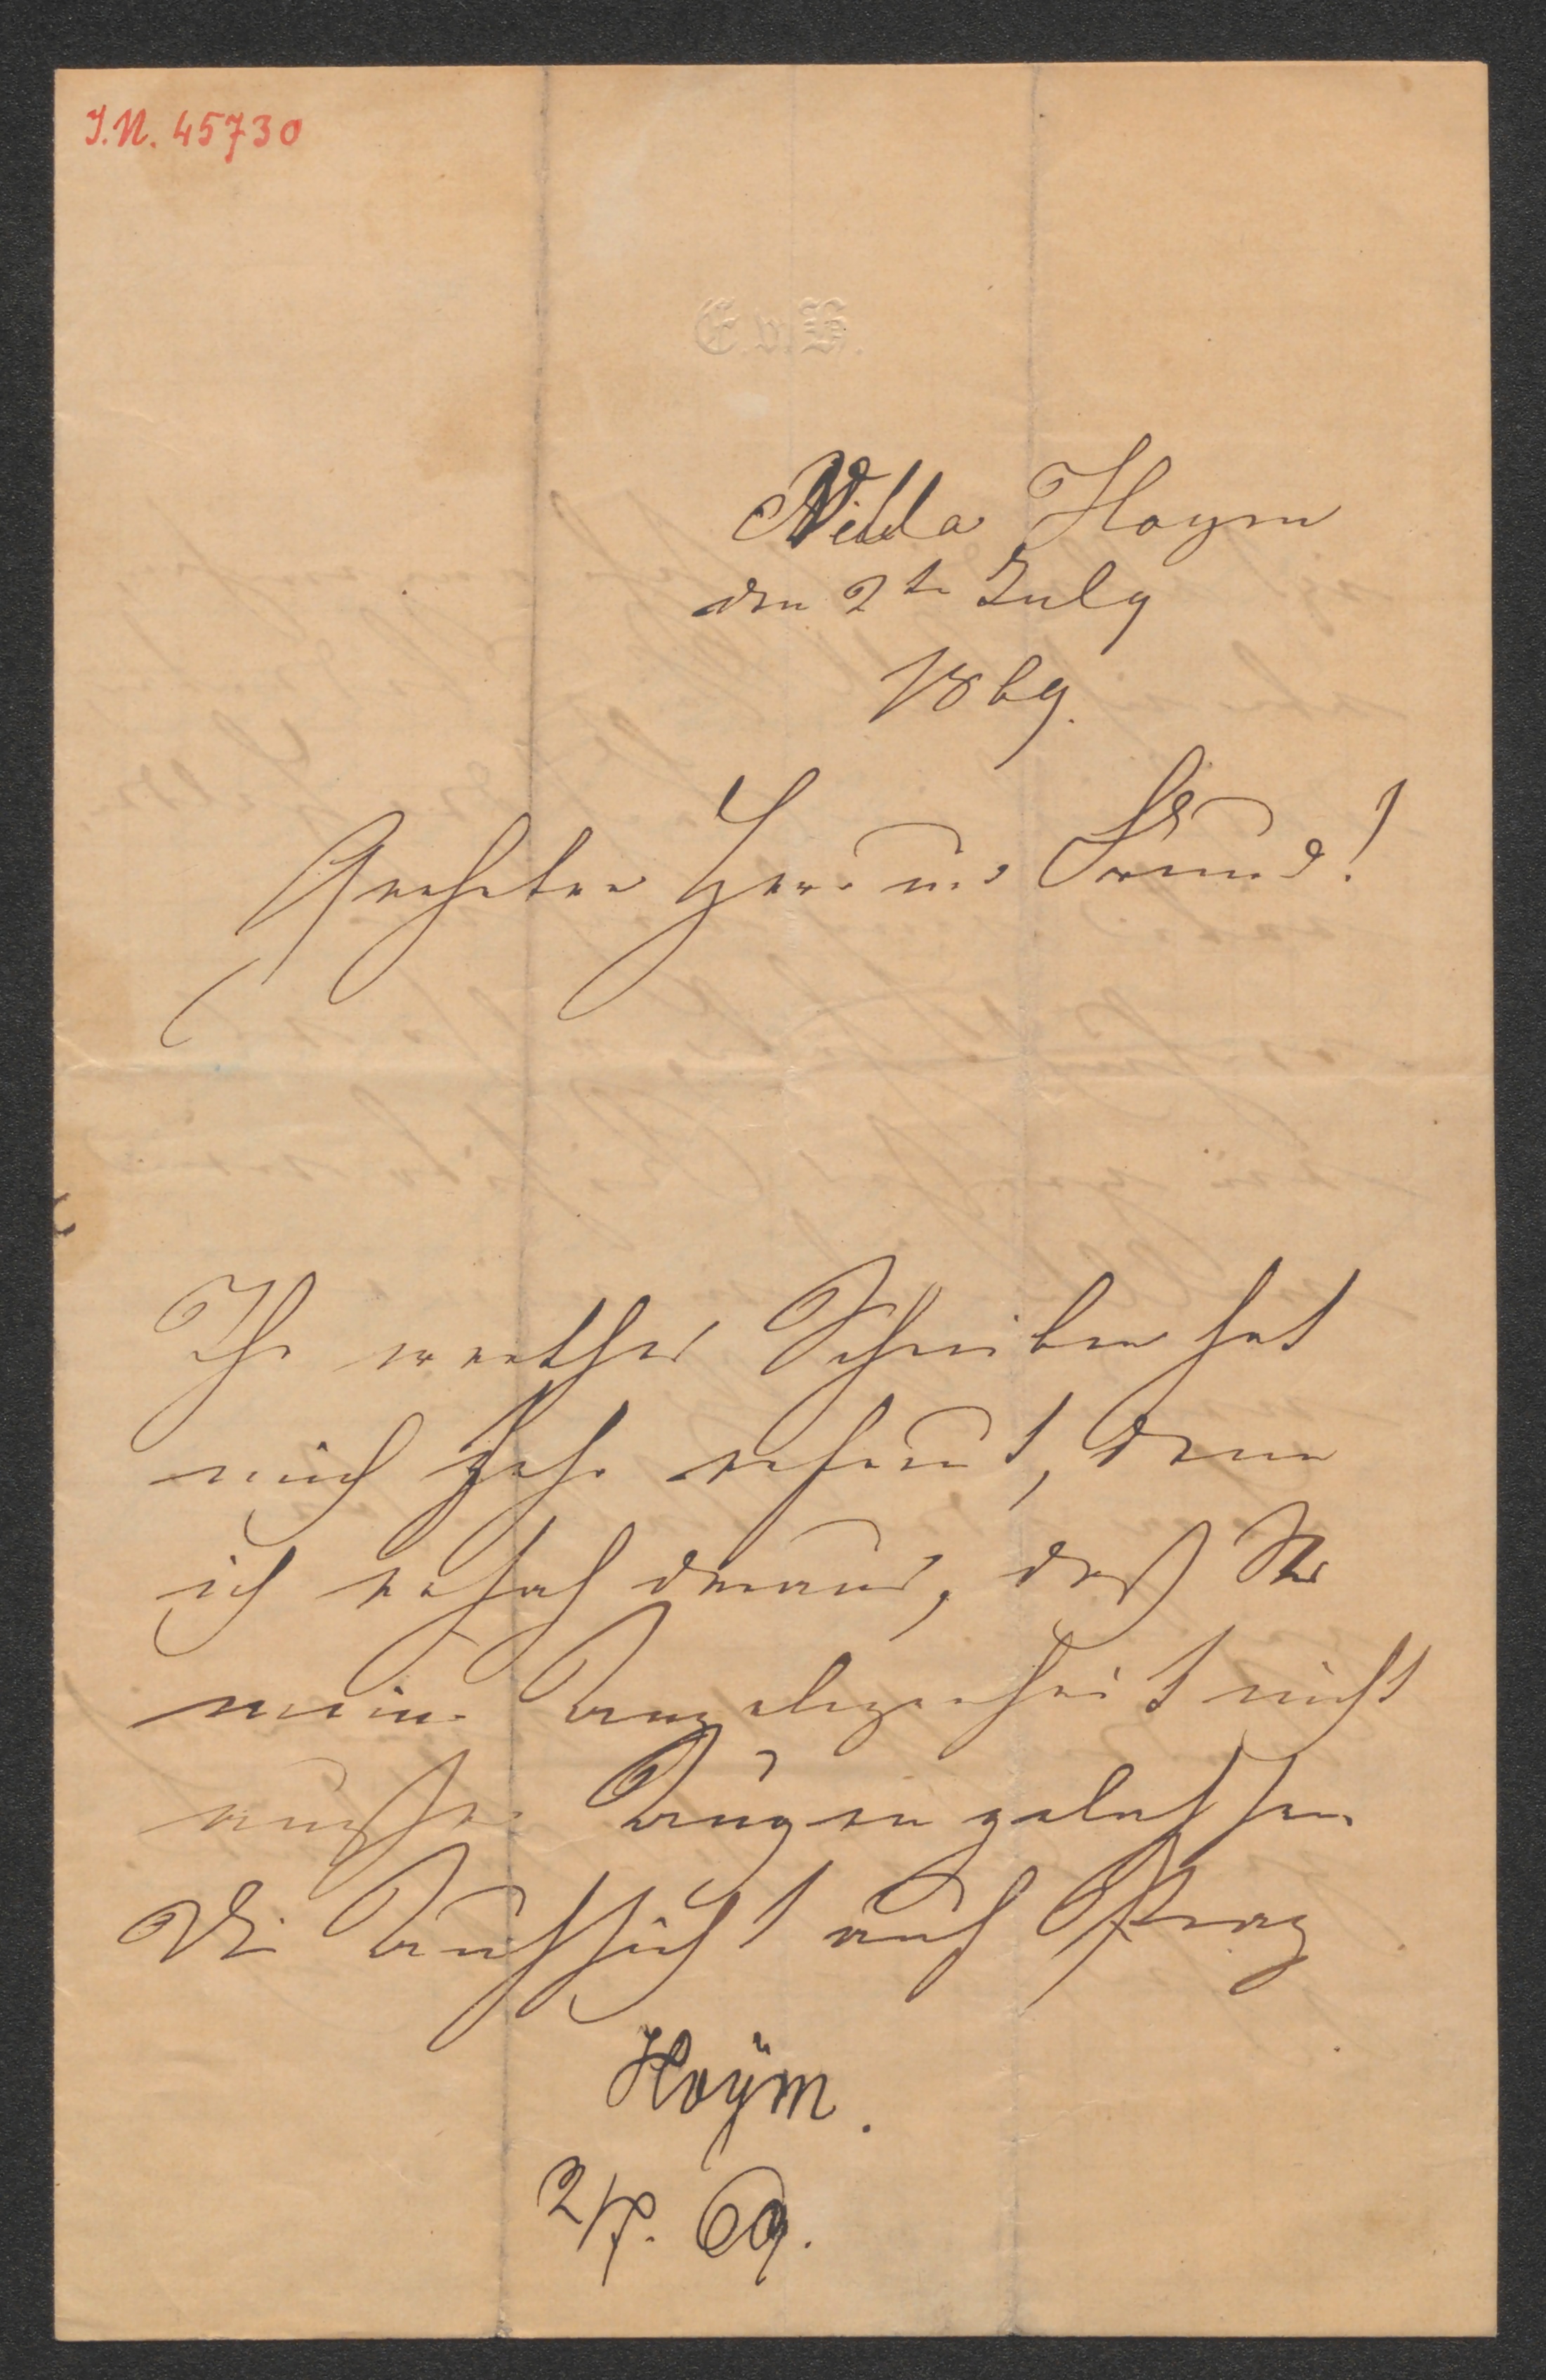 I.N. 45730
E.v.B.
Villa Hoym
den 2te July
1869.
Geehrter Herr und Freund!
Ihr werthes Schreiben hat
mich sehr erfreut, denn
ich ersah daraus, daß Sie
meine Angelegenheit nicht
außer Augen gelassen
Die Aussicht auf Prag
Hoÿm.
2/7. 69.